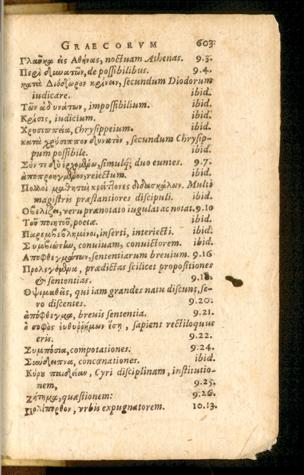 GRAECORVM 603
Γλαῦκα εἰς Αθήνας, noctuam Athenas. 9.3.
Περὶ δυνατῶν, de possibilibus. 9.4.
κατὰ Διόδωρον κρίνειν, secundum Diodorum
iudicare. ibid.
Τῶν ἀδυνάτων, impossibilium. ibid.
Κρίσις, iudicium. ibid.
Χρυσίππεια, Chrysippeium. ibid.
κατὰ χρύσιππον δυνατὸν, secundum Chrysip-
pum possibile. ibid.
Σύν τε δύ' ἐρχομένω, simulq; duo euntes. 9.7.
ἀποπροηγμένον, reiectum. ibid.
Πολλοὶ μαθηταὶ κρείττονες διδασκάλων. Multi
magistris praestantiores discipuli. ibid.
Οβελίζει, veru praenotato iugulat ac notat. 9.10
Τοῦ ποιητοῦ, poetae. ibid.
Παρεμβεβλημένοι, inserti, interiecti. ibid.
Συμβιωτὴν, conuiuam, conuictorem. ibid.
Αποφθεγμάτων, sententiarum breuium. 9.16
Προλεγόμενα, praedictas scilicet propositiones
& sententias. 9.18.
Οψιμαθεῖς, qui iam grandes natu discunt, se-
ro discentes. 9.20.
ἀπόφθεγμα, breuis sententia. 9.21.
ὁ σοφὸς εὐθυρρήμων ἔσῃ, sapiens rectiloquus
eris. 9.22.
Συμπόσια, compotationes. 9.24.
Σύνδειπνα, concoenationes. ibid.
Κύρου παιδείαν, Cyri disciplinam, institutio-
nem, 9.25.
ζήτημα, quaestionem: 9.26.
πολίπορθον, vrbis expugnatorem. 10.13.